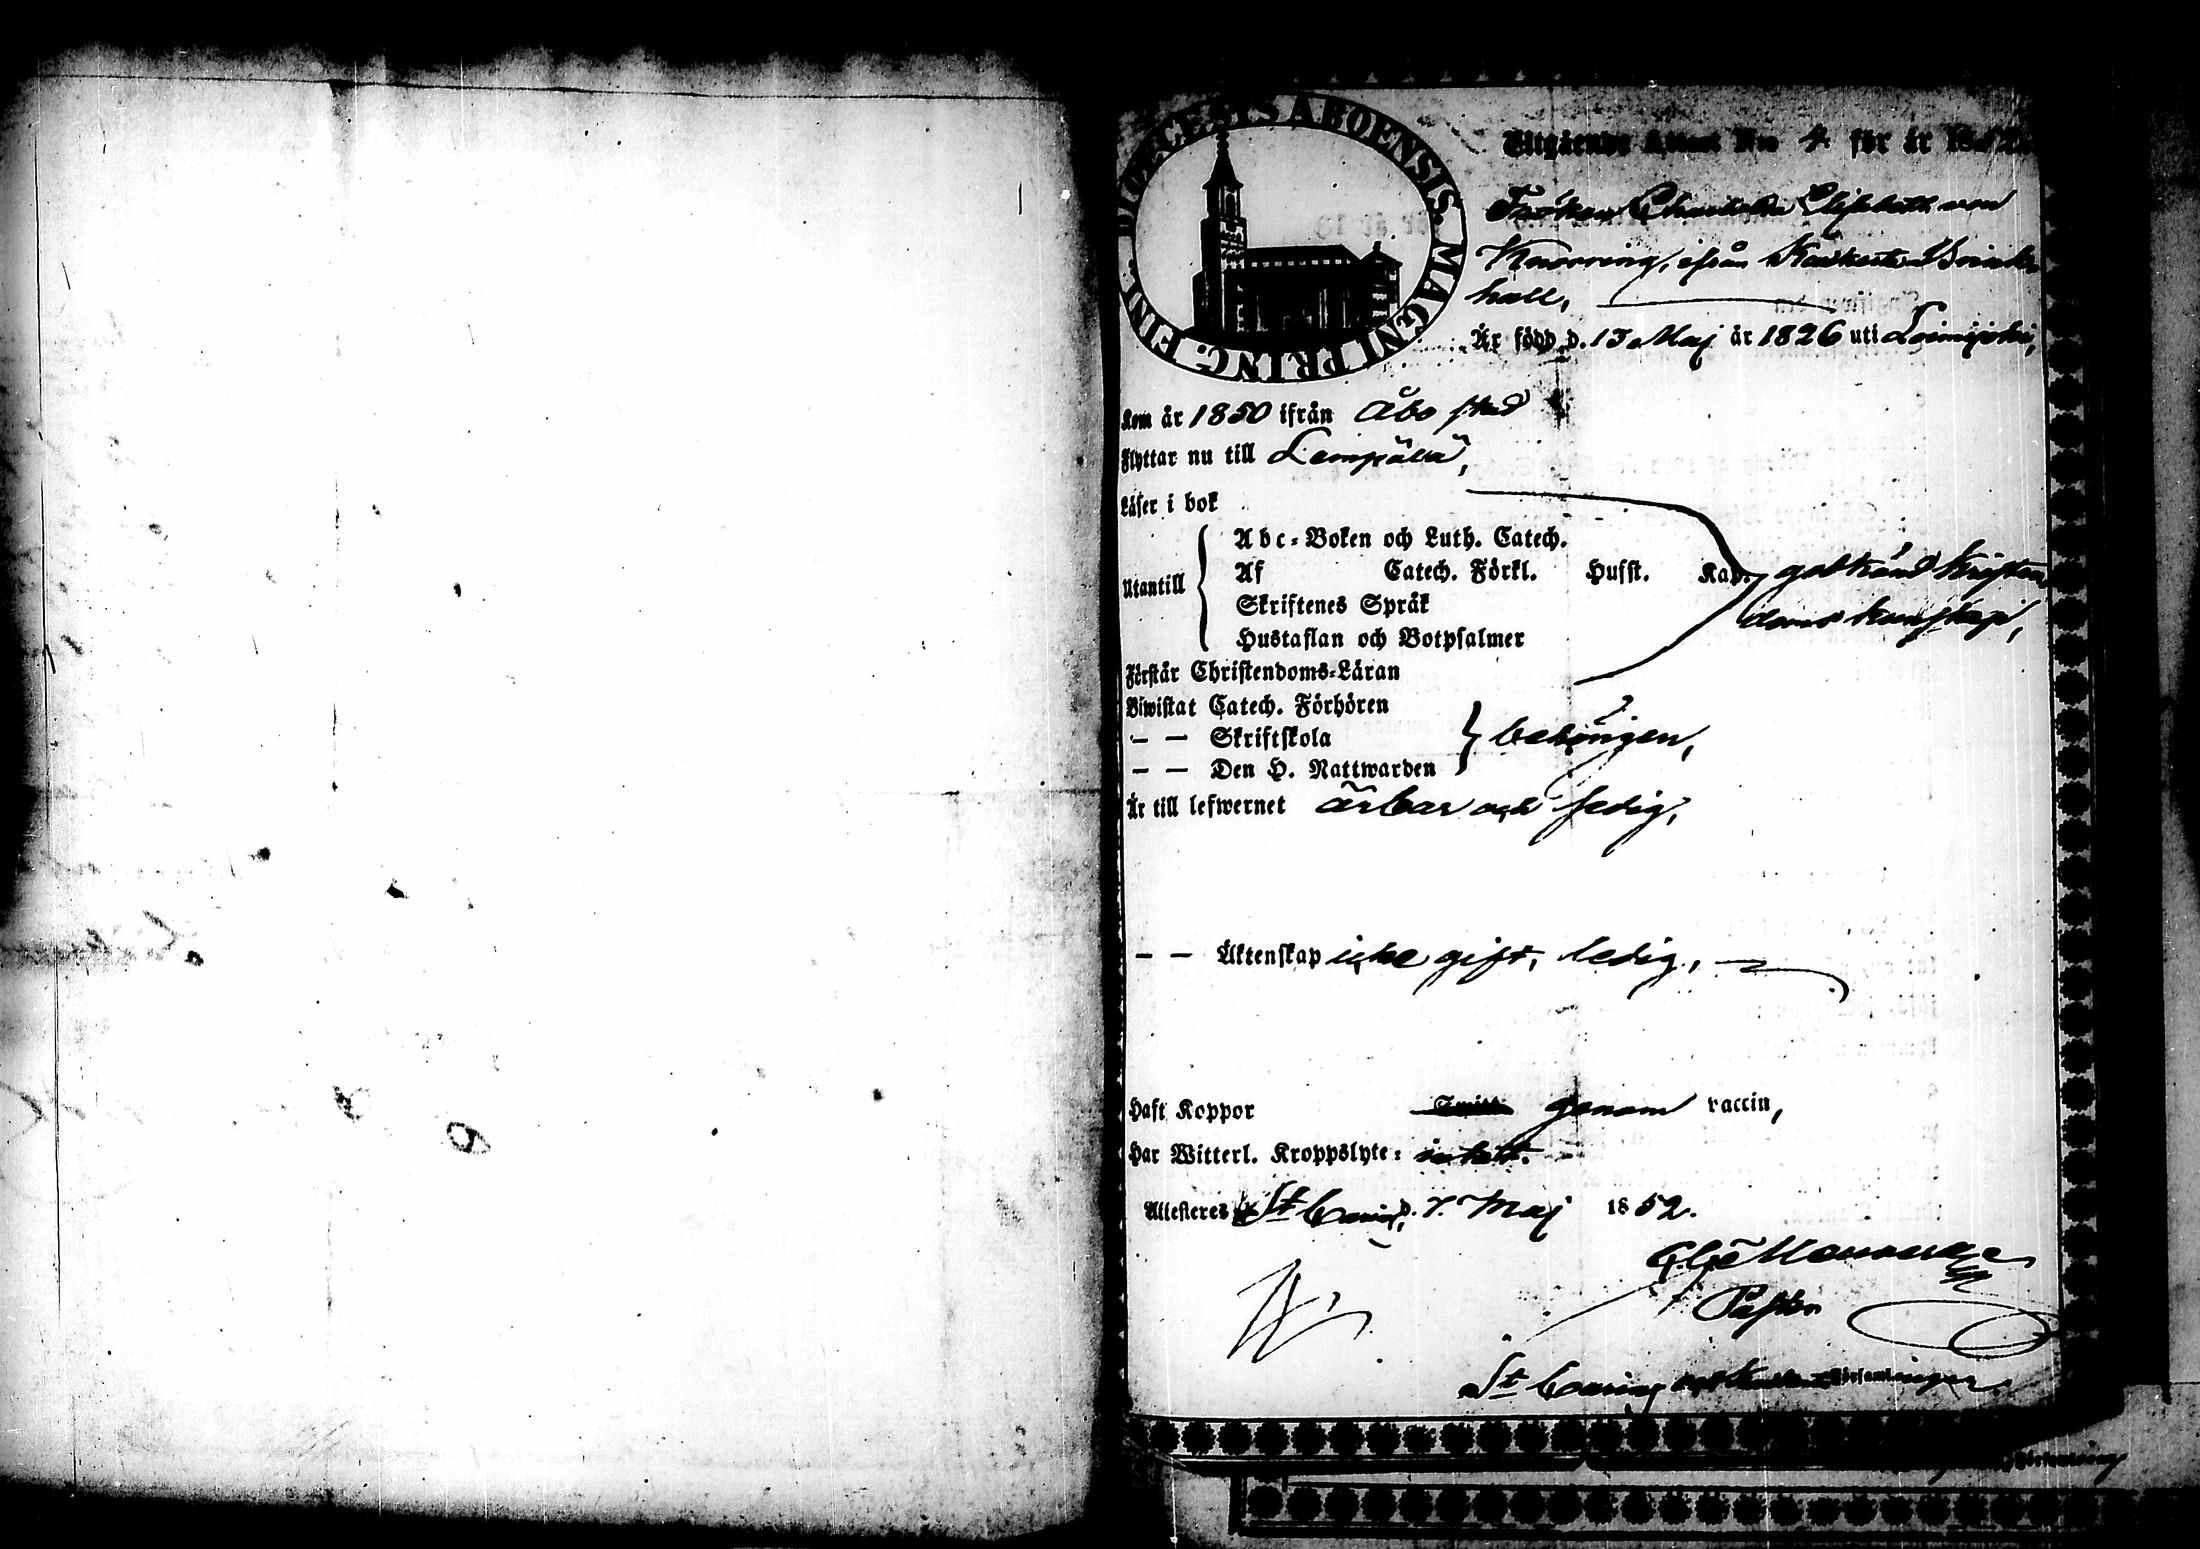 DIOECESIS ABOENSIS. MAGNI PRING. FINL.
Utgående Attest Nro 4 för år 1852.
Fröken Charlotta Elisabeth von
Knorring, ifrån Brink-
hall,
Är född d. 13 Maj år 1826 uti Loimijoki,
Kom år 1850 ifrån Åbo stad
Flyttar nu till Lempälä,
Läser i bok
Utantill
Abc-Boken och Luth. Catech.
Af Catech. Förkl. Husst. Kap. godkänd kristen
Skriftenes Språk
doms kunskap,
Hustaflan och Botpsalmer
Förstår Christendoms-Läran
Biwistat Catech. Förhören
— — Skriftskola behörigen,
— — Den H. Nattwarden
Är till lefwernet ärbar och sedig,
— — Äktenskap icke gift, ledig,
Haft Koppor genom vaccin,
Har Witterl. Kroppslyte: intet.
Attesteres St Carins, d. 7. Maj 1852.
Pastor
St Carins och Församlingar.